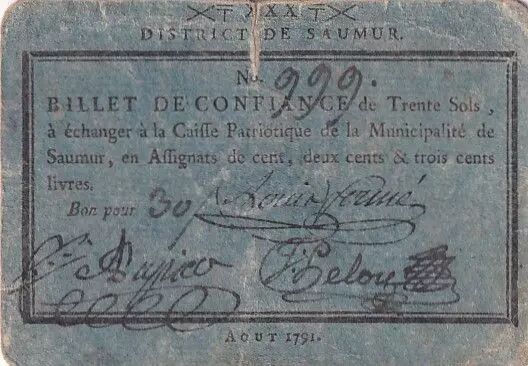 XXX
DISTRICT DE SAUMUR.
No. 999.
BILLET DE CONFIANCE de Trente Sols,
à échanger à la Caiſſe Patriotique de la Municipalité de
Saumur, en Aſſignats de cent, deux cents & trois cents
livres.
Bon pour 30 ſ. Louis
AOUT 1791.